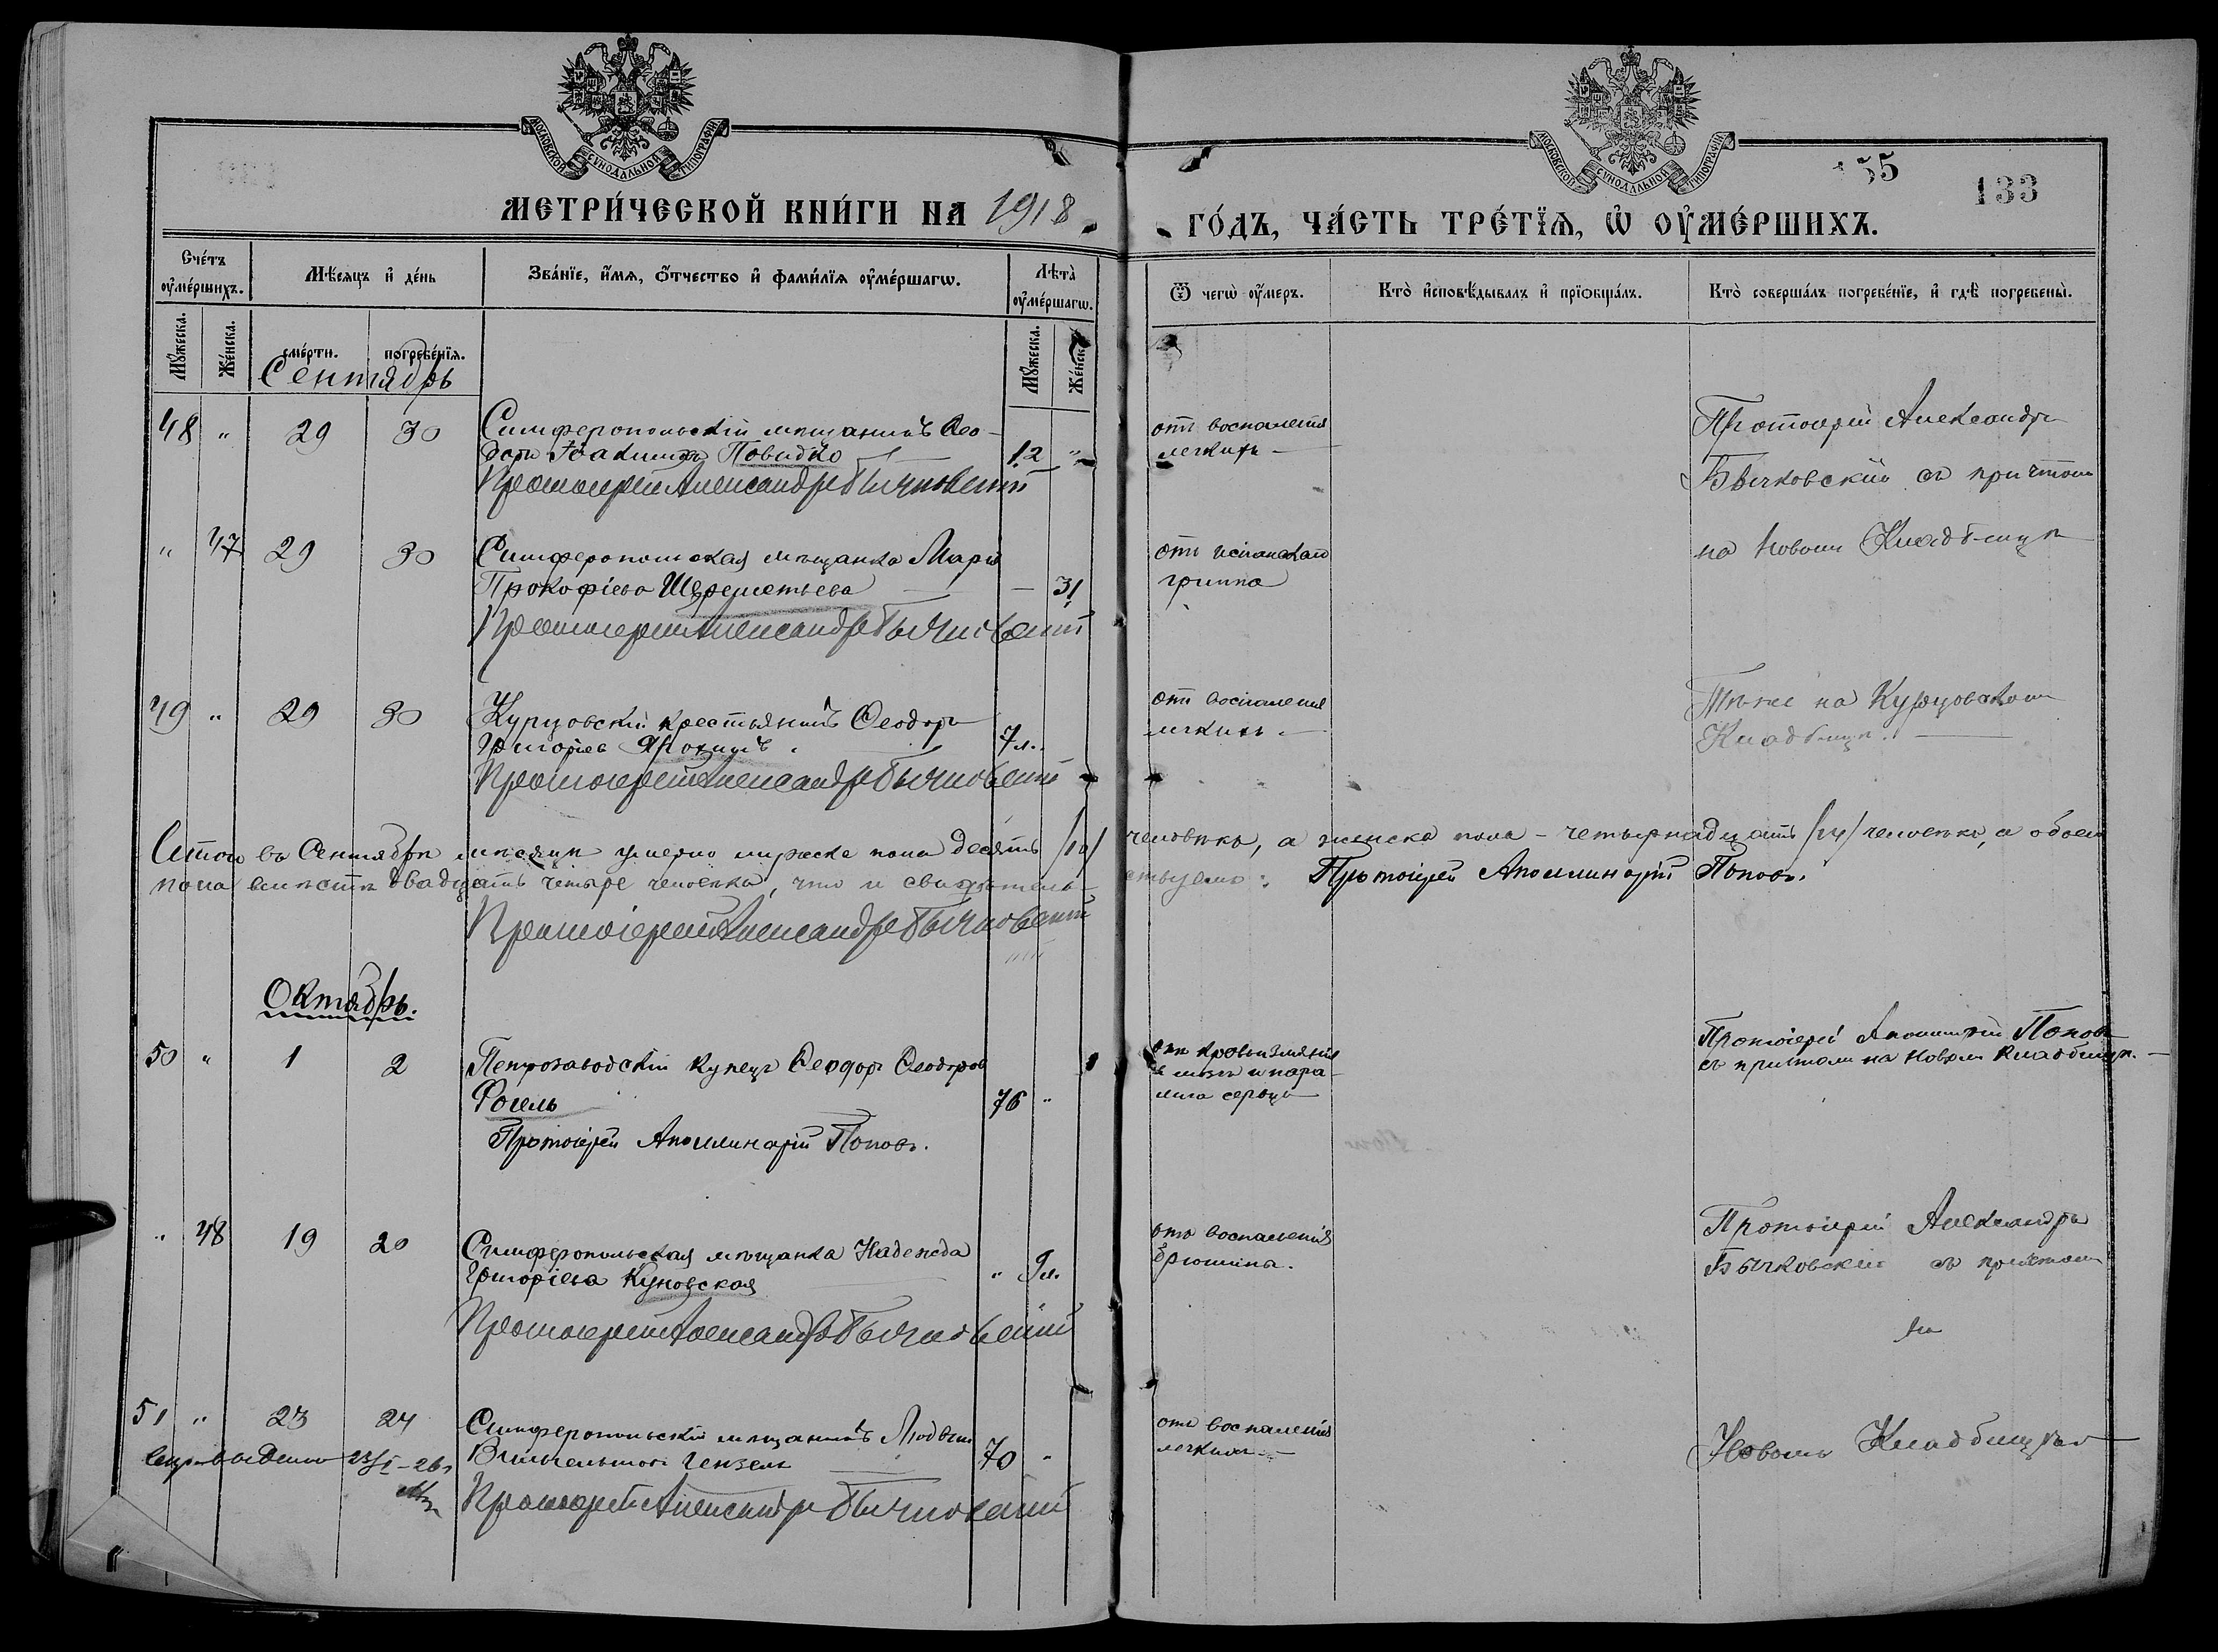 МОСКОВСКОЙ СУНОДАЛЬНОЙ ТИПОГРАФІИ
МОСКОВСКОЙ СУНОДАЛЬНОЙ ТИПОГРАФІИ
155
133
МЕТРИ́ЧЕСКОЙ КНИ́ГИ НА 1918
ГО́ДЪ, ЧА́СТЬ ТРЕ́ТЇѦ, Ѡ҆ ОУ҆МЕ́РШИХЪ.
Сче́тъ оу҆ме́ршихъ.
Мѣ́сѧцъ и҆ де́нь
Зва́нїе, и҆́мѧ, ѻ҆́тчество и҆ фами́лїѧ оу҆ме́ршагѡ.
Лѣта̀ оу҆ме́ршагѡ.
Ѿ чегѡ̀ оу҆́меръ.
Кто̀ и҆сповѣ́дывалъ и҆ прїѻбща́лъ.
Кто̀ соверша́лъ погребе́нїе, и҆ гдѣ̀ погребены̀.
Мꙋ́жеска.
Же́нска.
сме́рти.
погребе́нїѧ.
Мꙋ́жеска.
Же́нска.
Сентябрь
48 " 29 30 Симферопольскій мѣщанинъ Ѳео-
доръ Іоакимовъ Повидко 12 "
Протоіерей Александръ Бычковскій
отъ воспаленія
легкихъ
Протоіерей Александръ
Бычковскій съ причтомъ
" 47 29 30 Симферопольская мѣщанка Марія
Прокофіева Шереметьева — 31
Протоіерей Александръ Бычковскій
отъ испанскаго
гриппа
на Новомъ Кладбищѣ
49 " 29 30 Курцовскій крестьянинъ Ѳеодоръ
Григорьевъ 7 л.
Протоіерей Александръ Бычковскій
отъ воспаленія
легкихъ.
Тѣже на Курцовскомъ
Кладбищѣ.
Итого въ Сентябрѣ мѣсяцѣ умерло мужеска пола десять /10/ человѣкъ, а женска пола - четырнадцать /14/ человѣкъ, а обоего
пола вмѣстѣ двадцать четыре человѣка, что и свидѣтель-ствуемъ: Протоіерей Аполлинарій Поповъ.
Протоіерей Александръ Бычковскій
Октябрь.
50 " 1 2 Петрозаводскій купецъ Ѳеодоръ Ѳеодоровъ
76 "
Протоіерей Аполлинарій Поповъ.
отъ кровоизліянія
въ мозгъ и пара-
лича сердца
Протоіерей Аполлинарій Поповъ
съ причтомъ на Новомъ Кладбищѣ.
" 48 19 20 Симферопольская мѣщанка Надежда
Григоріева Куновская " 9 л.
Протоіерей Александръ Бычковскій
отъ воспаленія
брюшина.
Протоіерей Александръ
Бычковскій съ причтомъ
на
51 " 23 24 Симферопольскій мѣщанинъ Людвигъ
Вильгельмовъ Гензель 70 "
Протоіерей Александръ Бычковскій
отъ воспаленія
легкихъ
Новомъ Кладбищѣ